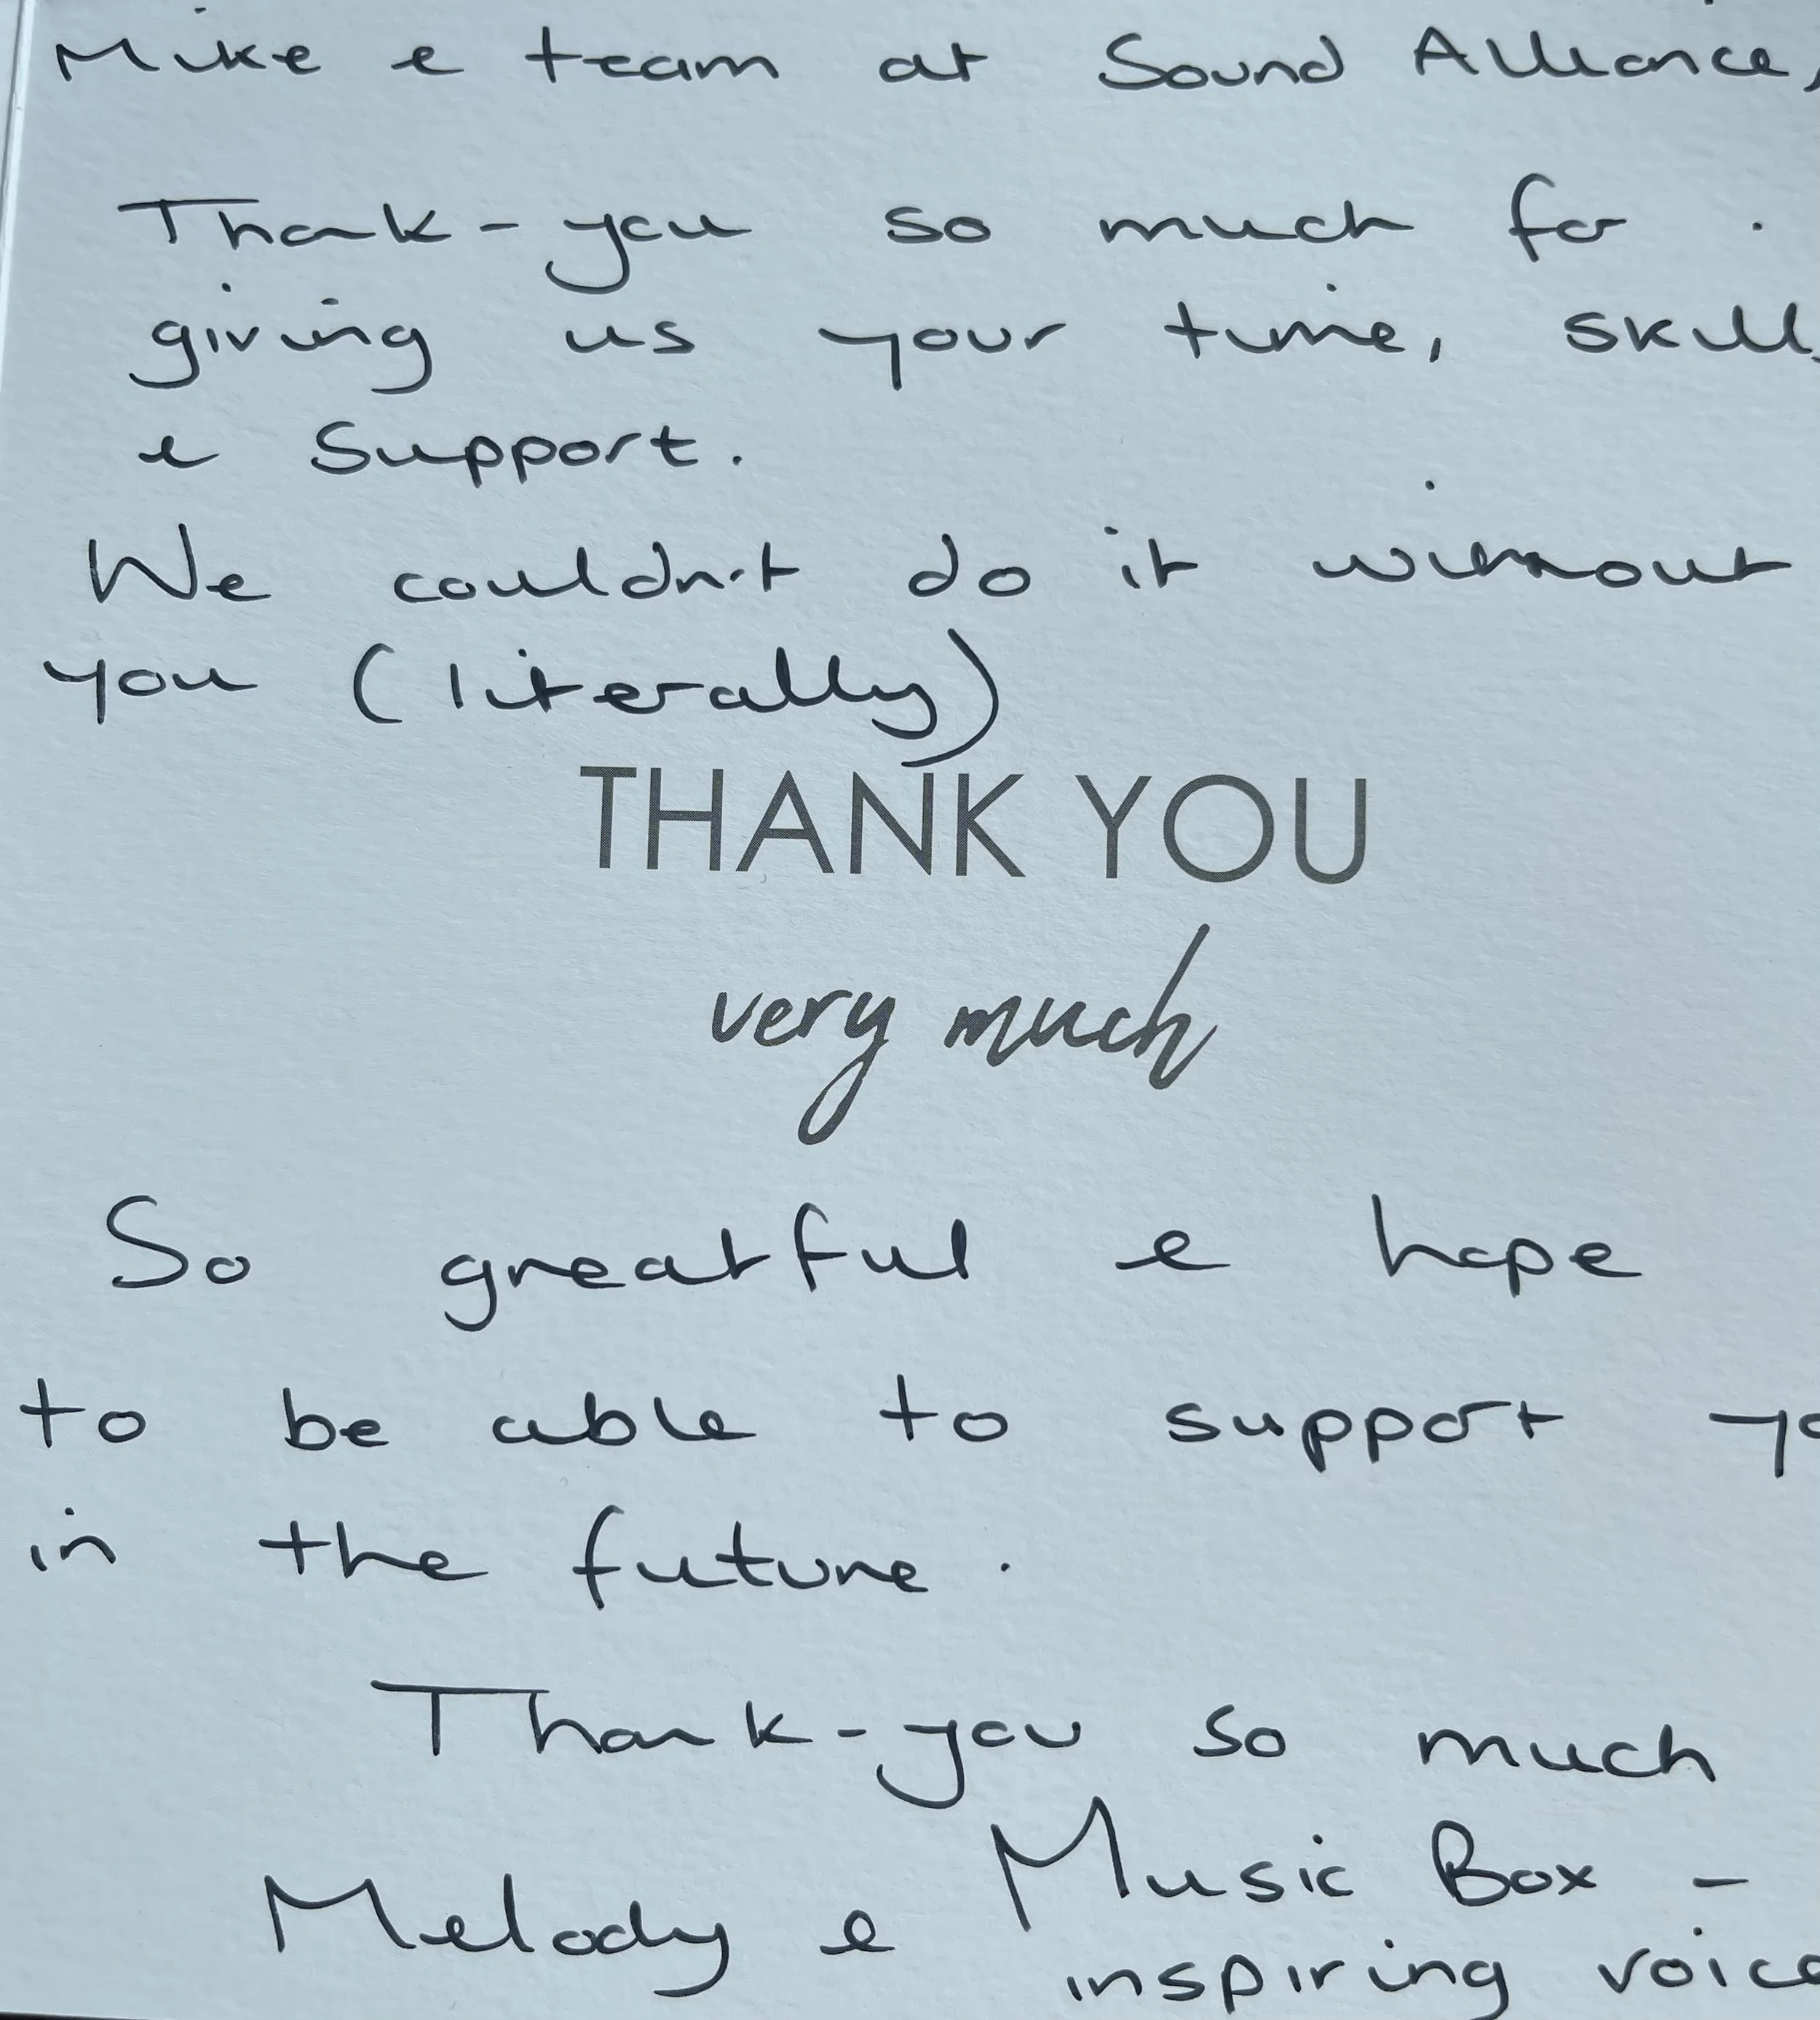 Mike & team at Sound Alliance,
Thank-you so much for
giving us your time, skill
& Support.
We couldn't do it without
you (literally)
THANK YOU
very much
So greatful & hope
to be able to support yo
in the future.
Thank-you so much
Melody & Music Box -
inspiring voice